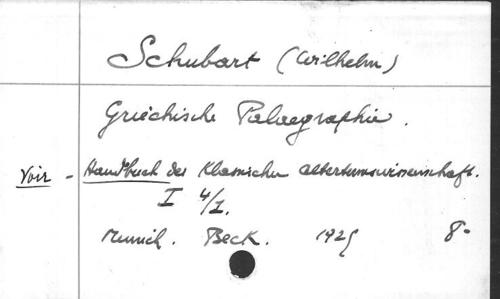 Schubart (Wilhelm)
Griechische Palaeographie.
Voir - Handbuch der Klassischen Altertumswissenschaft.
I 4/1.
Munich. Beck. 1925 8°